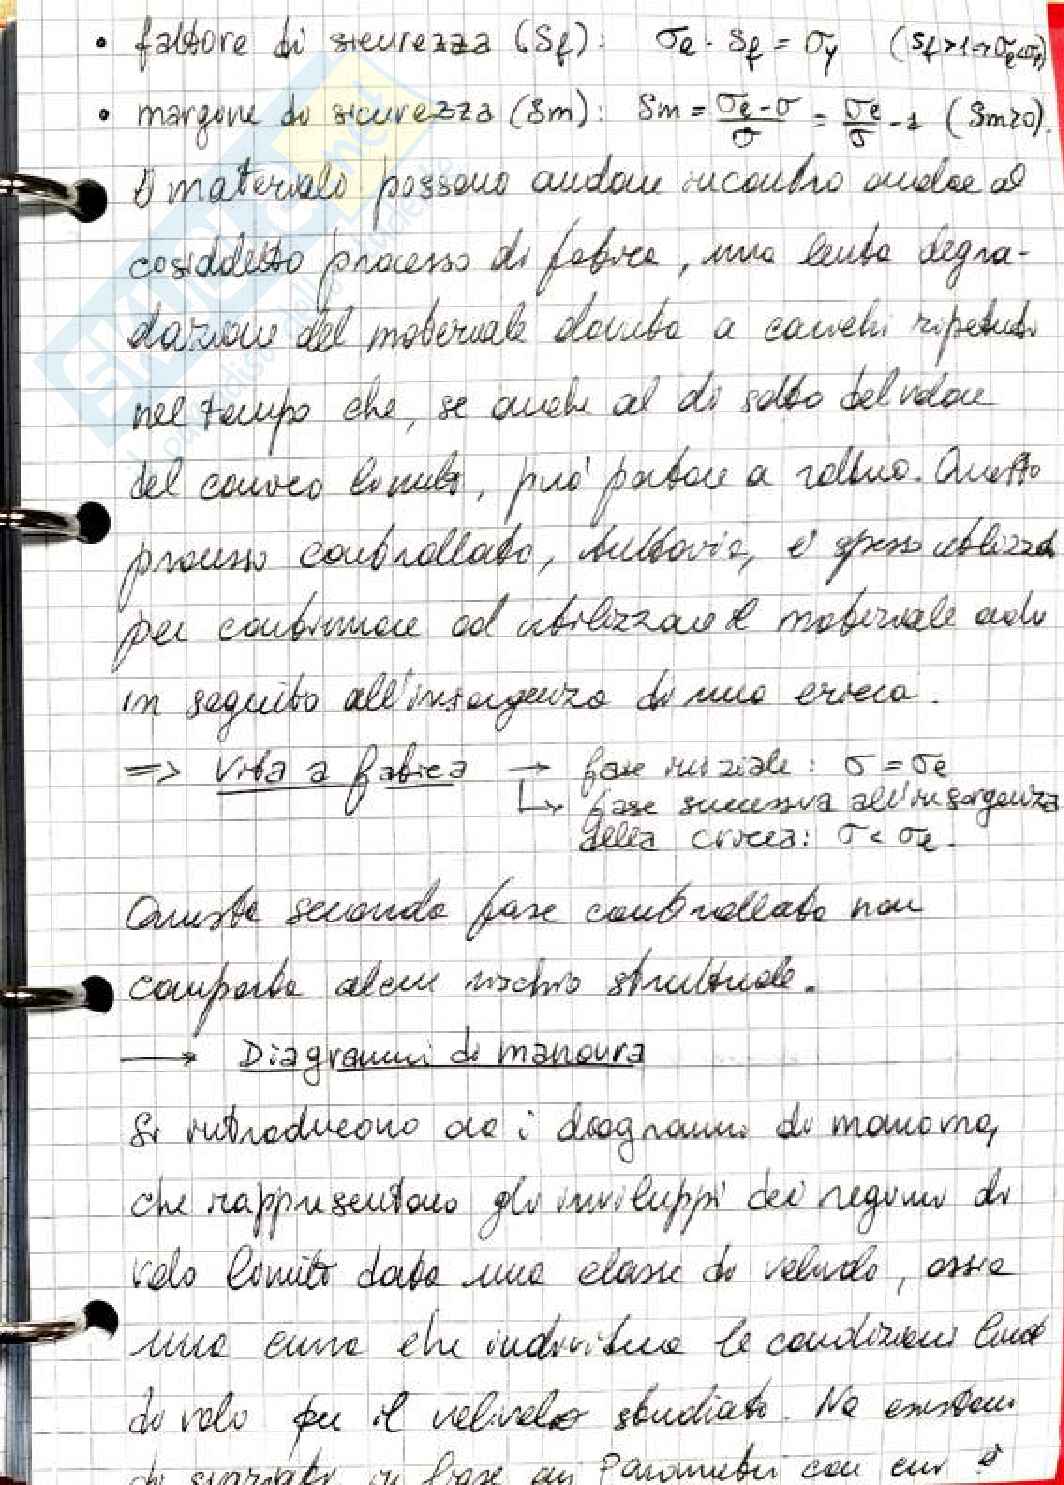 • fattore di sicurezza (Sf): σe · Sf = σy (Sf>1 => σe<σy)
• margine di sicurezza (Sm): Sm = (σe - σ)/σ = σe/σ - 1 (Sm≥0).
I materiali possono andare incontro anche al
cosiddetto processo di fatica, una lenta degra-
dazione del materiale dovuta a carichi ripetuti
nel tempo che, se anche al di sotto del valore
del carico limite, può portare a rottura. Questo
processo controllato, tuttavia, è spesso utilizzato
per continuare ad utilizzare il materiale anche
in seguito all'insorgenza di una cricca.
=> Vita a fatica → fase iniziale: σ = σe
↳ fase successiva all'insorgenza
della cricca: σ < σe.
Questa seconda fase controllata non
comporta alcun rischio strutturale.
→ Diagrammi di manovra
Si introducono ora i diagrammi di manovra,
che rappresentano gli inviluppi dei regimi di
volo limite data una classe di velivolo, ossia
una curva che individua le condizioni limite
di volo per il velivolo studiato. Ne esistono
di svariati in base ai parametri con cui è